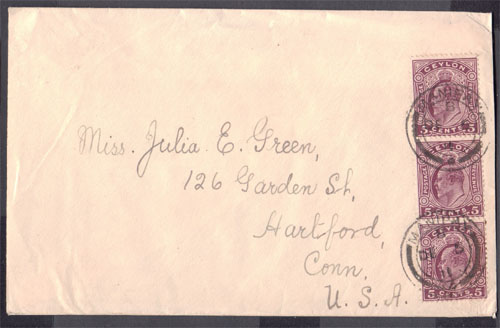 Miss. Julia E. Green,
126 Garden St,
Hartford,
Conn.
U. S. A.
CEYLON
POSTAGE
5 CENTS 5
CEYLON
POSTAGE
5 CENTS 5
POSTAGE
5 CENTS 5